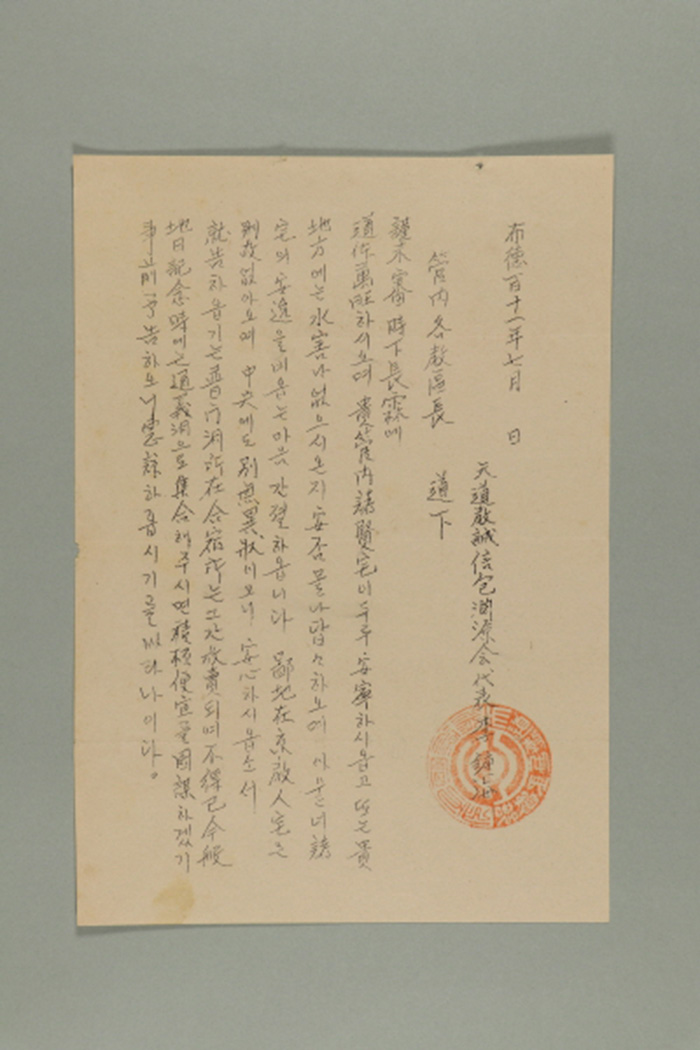 布德百十一年七月 日
天道敎誠信包淵源會代表 李鍾海
管內各敎區長 道下
謹未審時下長霖에
道作萬旺하시오며 貴管內諸賢宅이 두루 安寧하시옵고 또는 貴
地方에는 水害나 없으시온지 安否 몰나 답々하오며 아울너 諸
宅의 安逸을 비옵는 마음 간절하옵니다 鄙地在京敎人宅은
別故없아오며 中央에도 別無異狀이오니 安心하시옵소서
就告하옵기는 普門洞所在合宿所는 그간 放賣되여 不得已 今般
地日記念時에는 通義洞으로 集合해주시면 積極 便宜를 圖謀하겠기
事前予告하오니 惠諒하옵시기를 바라나이다。